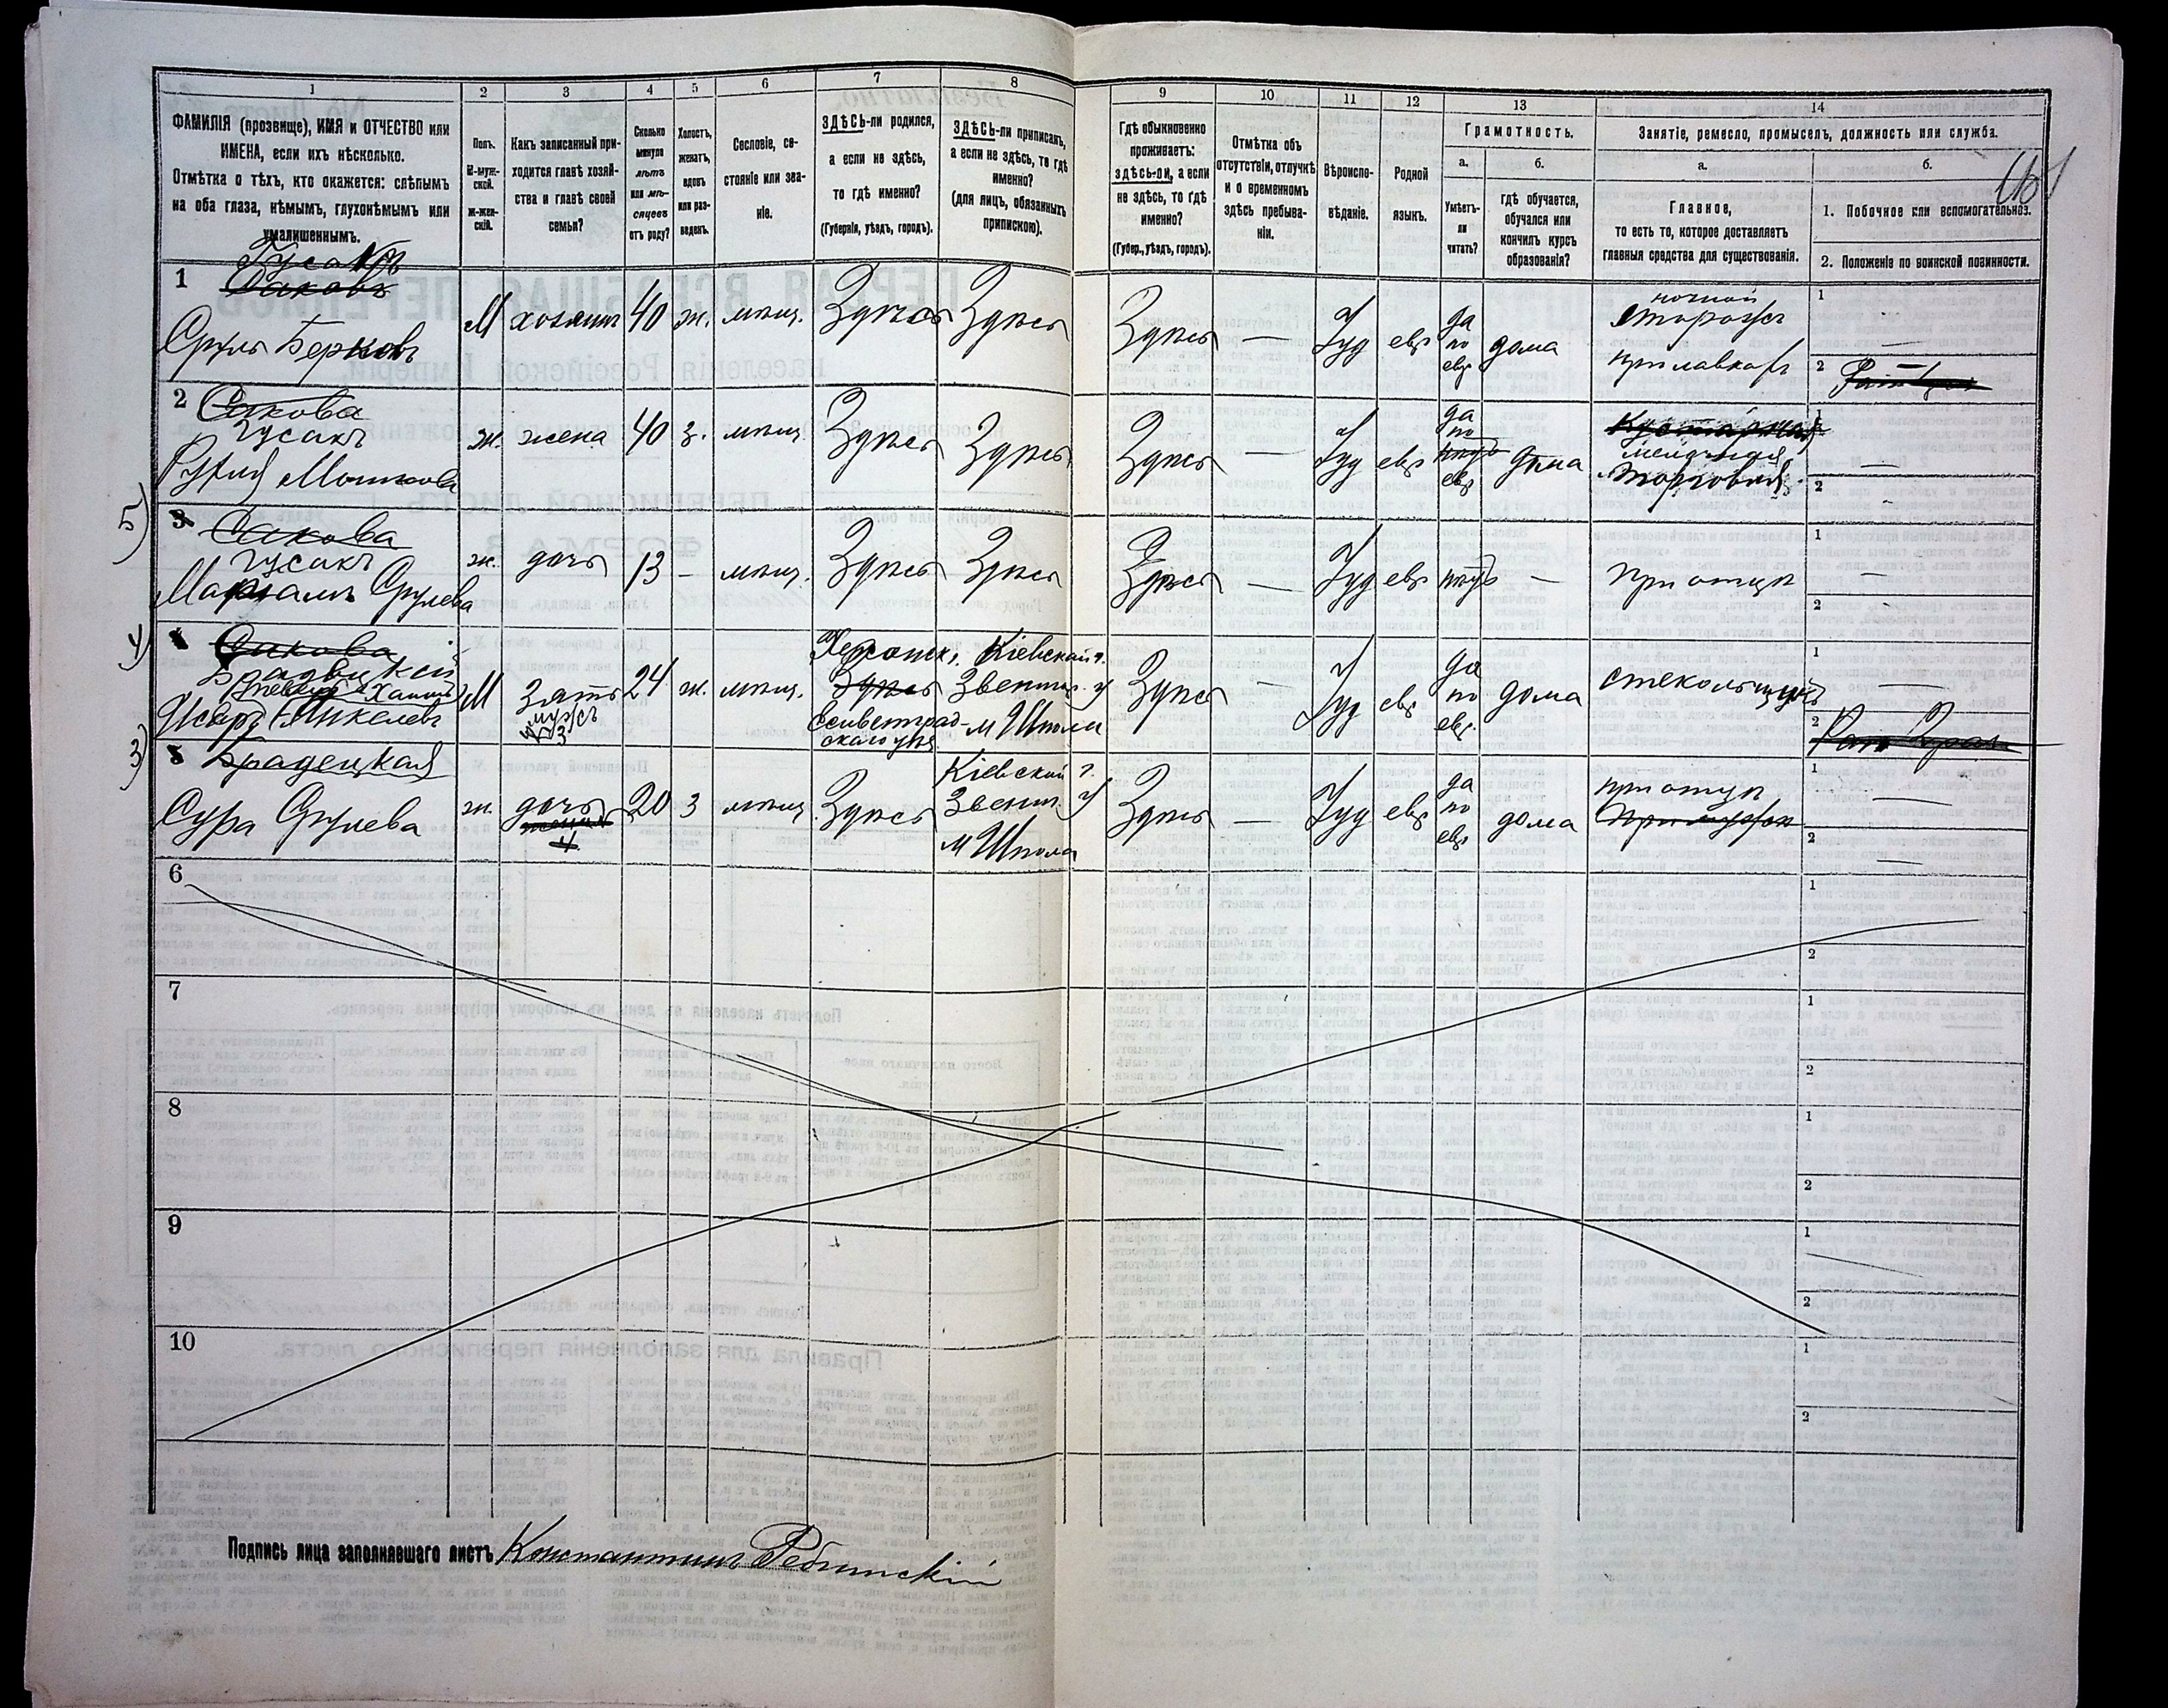 1 2 3 4 5 6 7 8 9 10 11 12 13 14
ФАМИЛІЯ (прозвище), ИМЯ и ОТЧЕСТВО или
ИМЕНА, если ихъ нѣсколько.
Отмѣтка о тѣхъ, кто окажется: слѣпымъ
на оба глаза, нѣмымъ, глухонѣмымъ или
умалишеннымъ.
Полъ.
М-муж-
ской.
ж-жен-
скій.
Какъ записанный при-
ходится главѣ хозяй-
ства и главѣ своей
семьи?
Сколько
минуло
лѣтъ
или мѣ-
сяцевъ
отъ роду?
Холостъ,
женатъ,
вдовъ
или раз-
веденъ.
Сословіе, со-
стояніе или зва-
ніе.
ЗДѢСЬ-ли родился,
а если не здѣсь,
то гдѣ именно?
(Губернія, уѣздъ, городъ).
ЗДѢСЬ-ли приписанъ,
а если не здѣсь, то гдѣ
именно?
(для лицъ, обязанныхъ
припискою).
Гдѣ обыкновенно
проживаетъ:
здѣсь-ли, а если
не здѣсь, то гдѣ
именно?
(Губер., уѣздъ, городъ).
Отмѣтка объ
отсутствіи, отлучкѣ
и о временномъ
здѣсь пребыва-
ніи.
Вѣроиспо-
вѣданіе.
Родной
языкъ.
Грамотность.
а.
Умѣетъ-
ли
читать?
б.
гдѣ обучается,
обучался или
кончилъ курсъ
образованія?
Занятіе, ремесло, промыселъ, должность или служба.
а.
Главное,
то есть то, которое доставляетъ
главныя средства для существованія.
б.
1. Побочное или вспомогательное.
2. Положеніе по воинской повинности.
Гусакъ
1 Сакова
Сруль Берковъ
М хозяинъ 40 ж. мѣщ. Здѣсь Здѣсь Здѣсь — Іуд евр
да
по
евр
дома
ночной
сторожъ
при лавкахъ
1 —
2 —
2 Сакова
Гусакъ
Мошкова
ж. жена 40 з. мѣщ. Здѣсь Здѣсь Здѣсь — Іуд евр
да
по
евр
дома
мелочная
торговля
1 —
2 —
5) 3 Сакова
Гусакъ
Марьямъ Срулева
ж. дочь 13 - мѣщ. Здѣсь Здѣсь Здѣсь — Іуд евр нѣтъ —
при отцѣ
1 —
2
4) 4 Сакова
М Зять 24 ж. мѣщ.
мужъ
3
Херсонск.
Здѣсь
Елисветград-
скаго уѣз.
Кіевской г.
Звениг. у
м Шпола
Здѣсь — Іуд евр
да
по
евр.
дома
стекольщикъ
1 —
2
3) 5 Брадецкая
Сура Срулева
ж. дочь 20 з мѣщ. Здѣсь
4
Кіевской г.
Звениг. у
м Шпола
Здѣсь — Іуд евр
да
по
евр
дома
при отцѣ
при мужѣ
1 —
2 —
6 1 2
7 1 2
8 1 2
9 1 2
10 1 2
Подпись лица заполнявшаго листъ Константинъ